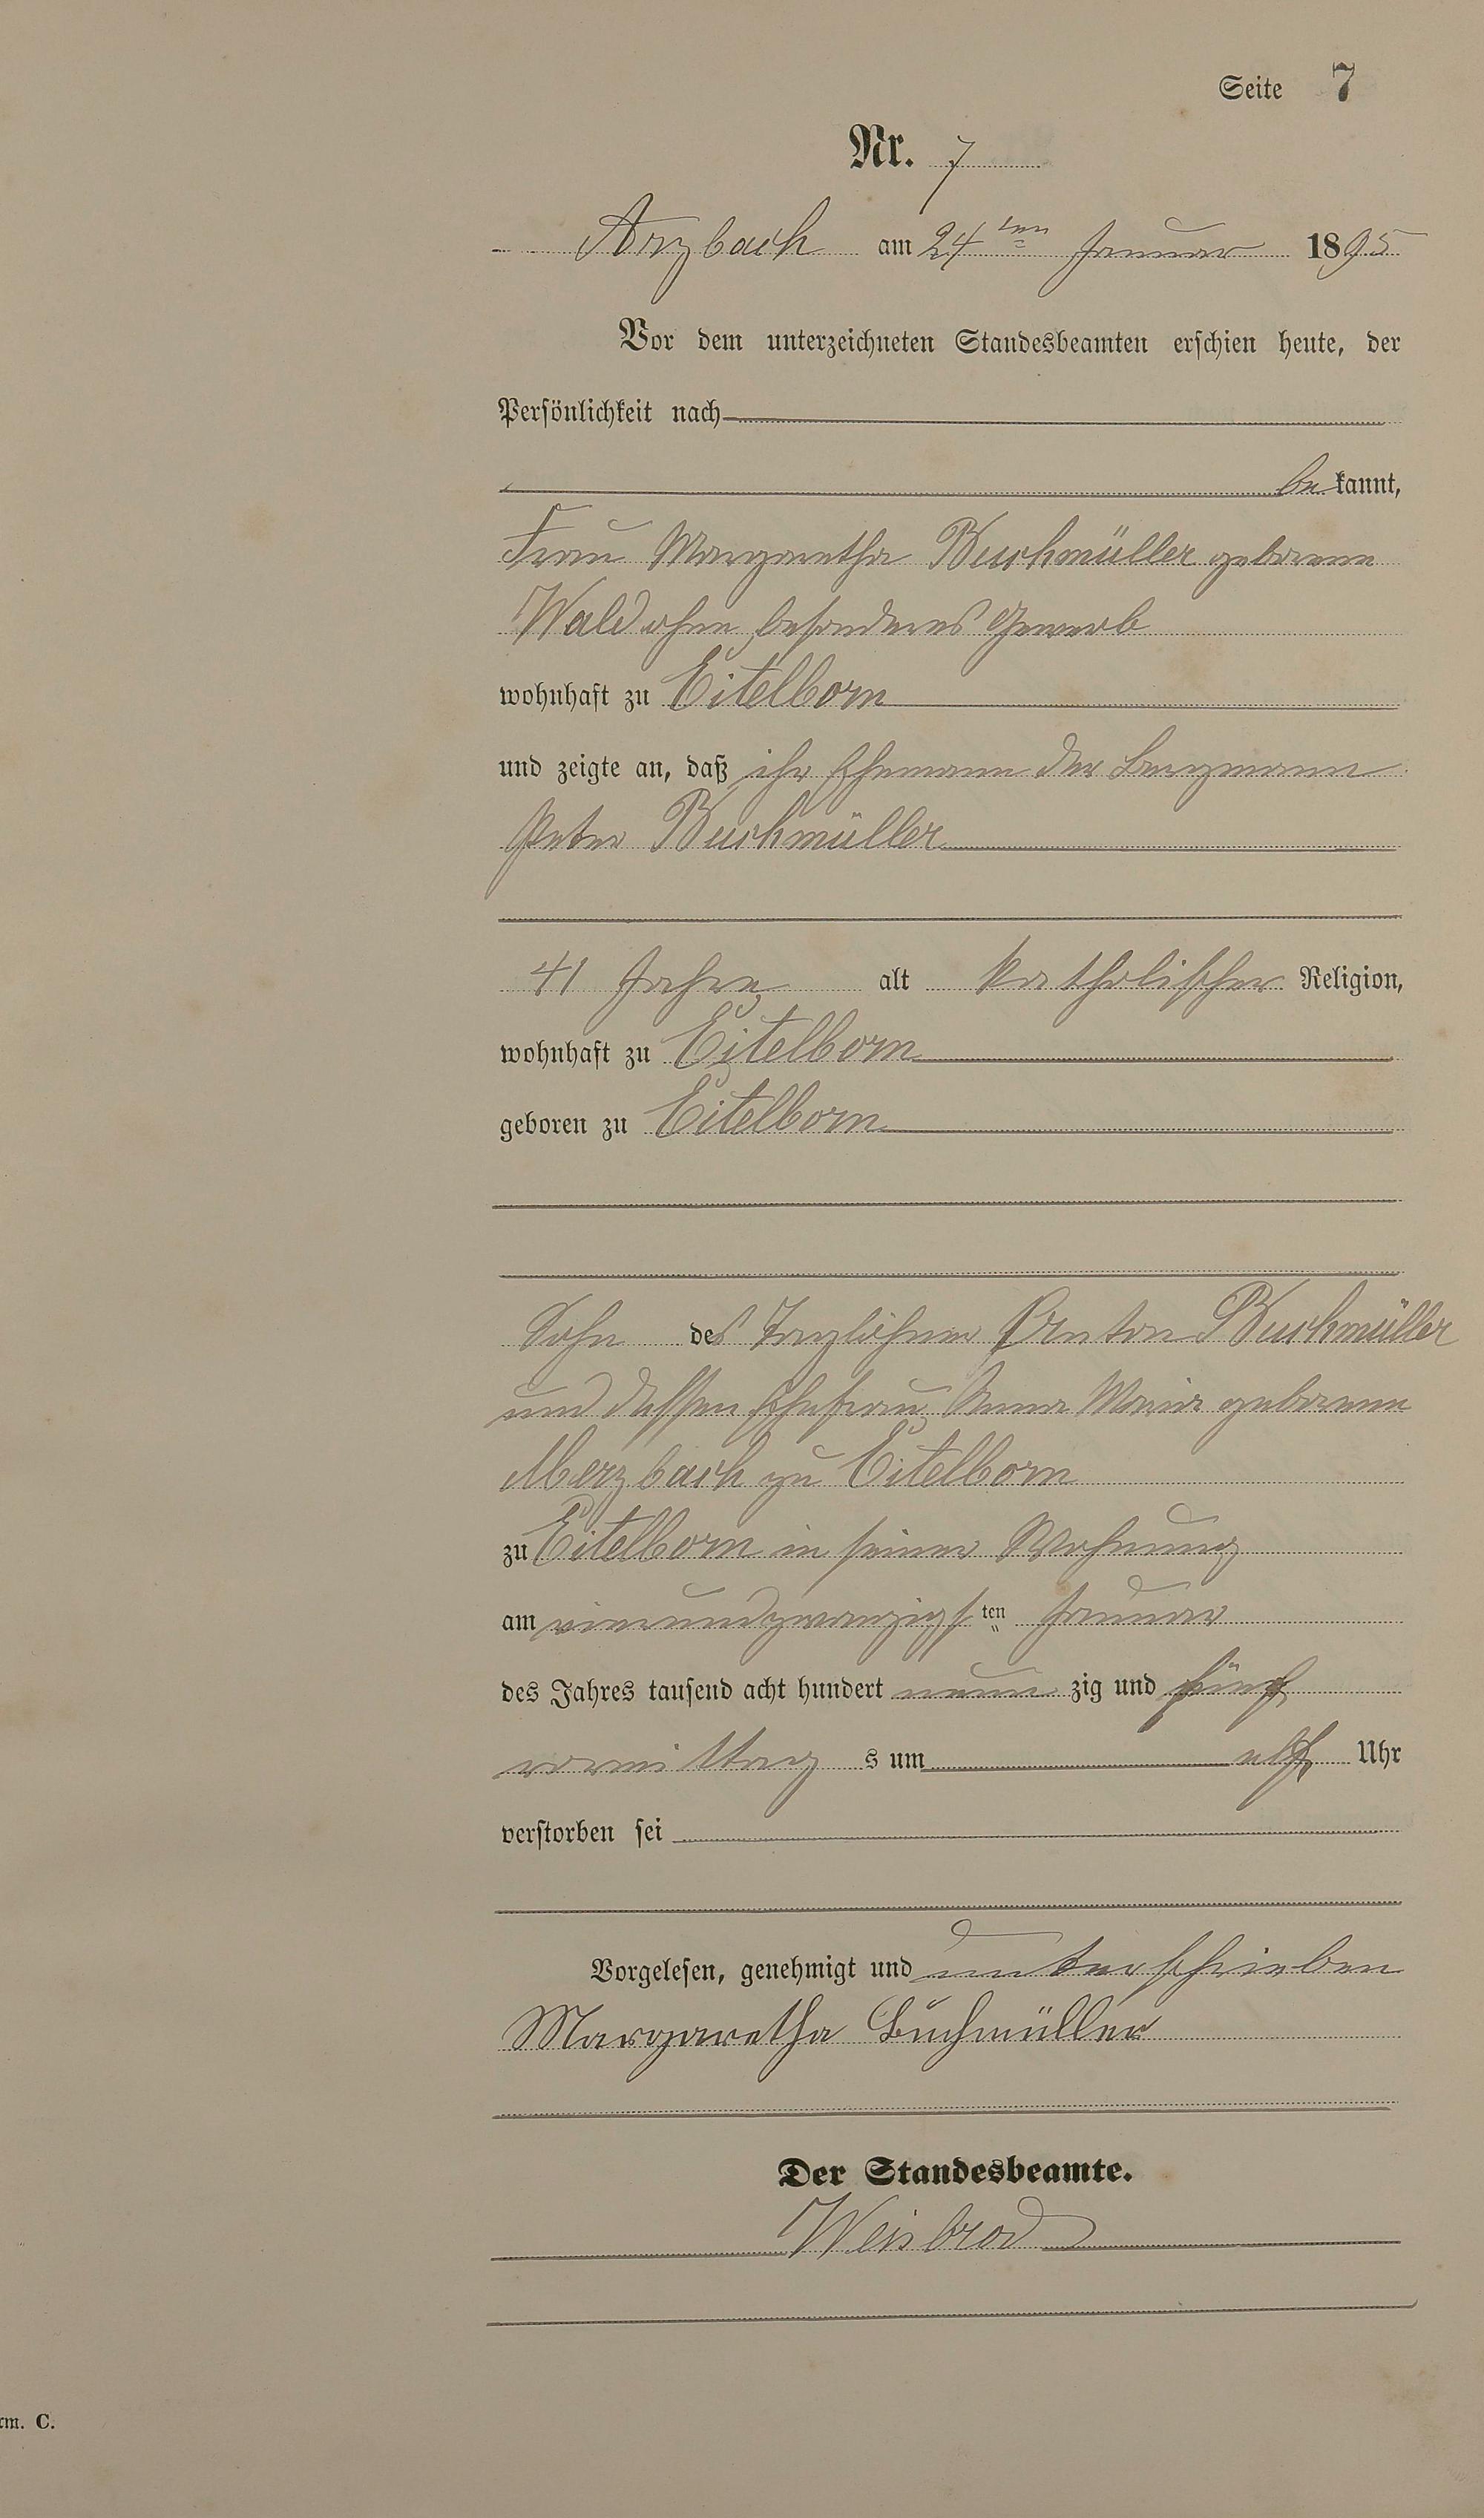 Seite 7
Nr. 7
Arzbach am 24ten Januar 1895
Vor dem unterzeichneten Standesbeamten erschien heute, der
Persönlichkeit nach
bekannt,
Frau Margaretha Buchmüller geborene
Wald ohne besonderes Gewerb
wohnhaft zu Eitelborn
und zeigte an, daß ihr Ehemann der Bergmann
Peter Buchmüller
41 Jahre alt katholischer Religion,
wohnhaft zu Eitelborn
geboren zu Eitelborn
Sohn des Taglöhner Anton Buchmüller
und dessen Ehefrau Anna Maria geborene
Merzbach zu Eitelborn
zu Eitelborn in seiner Wohnung
am vierundzwanzigsten Januar
des Jahres tausend acht hundert neunzig und fünf
vormittags um elf Uhr
verstorben sei
Vorgelesen, genehmigt und unterschrieben
Margaretha Buchmüller
Der Standesbeamte.
Weisbrod
rm. C.